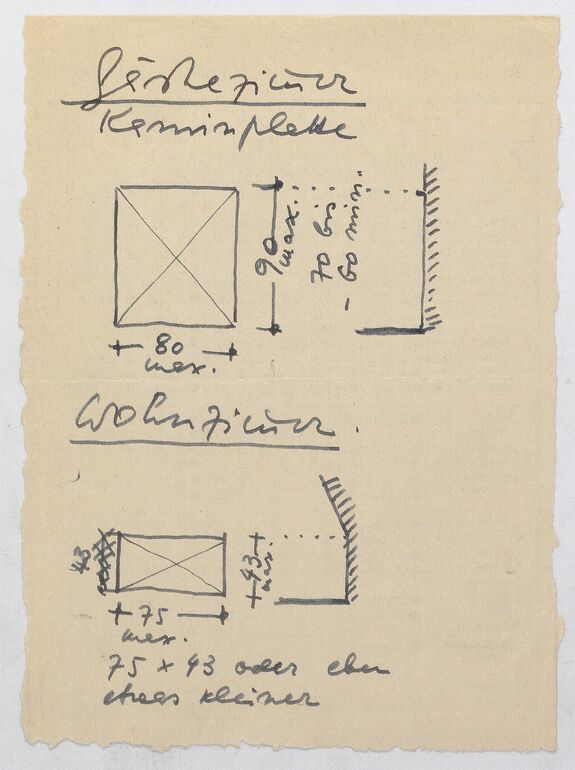 Gästezimmer
Kaminplatte
90
max.
70 bis
- 60 min.
80
max.
Wohnzimmer.
43
43
max.
75
max.
75 x 43 oder eben
etwas kleiner